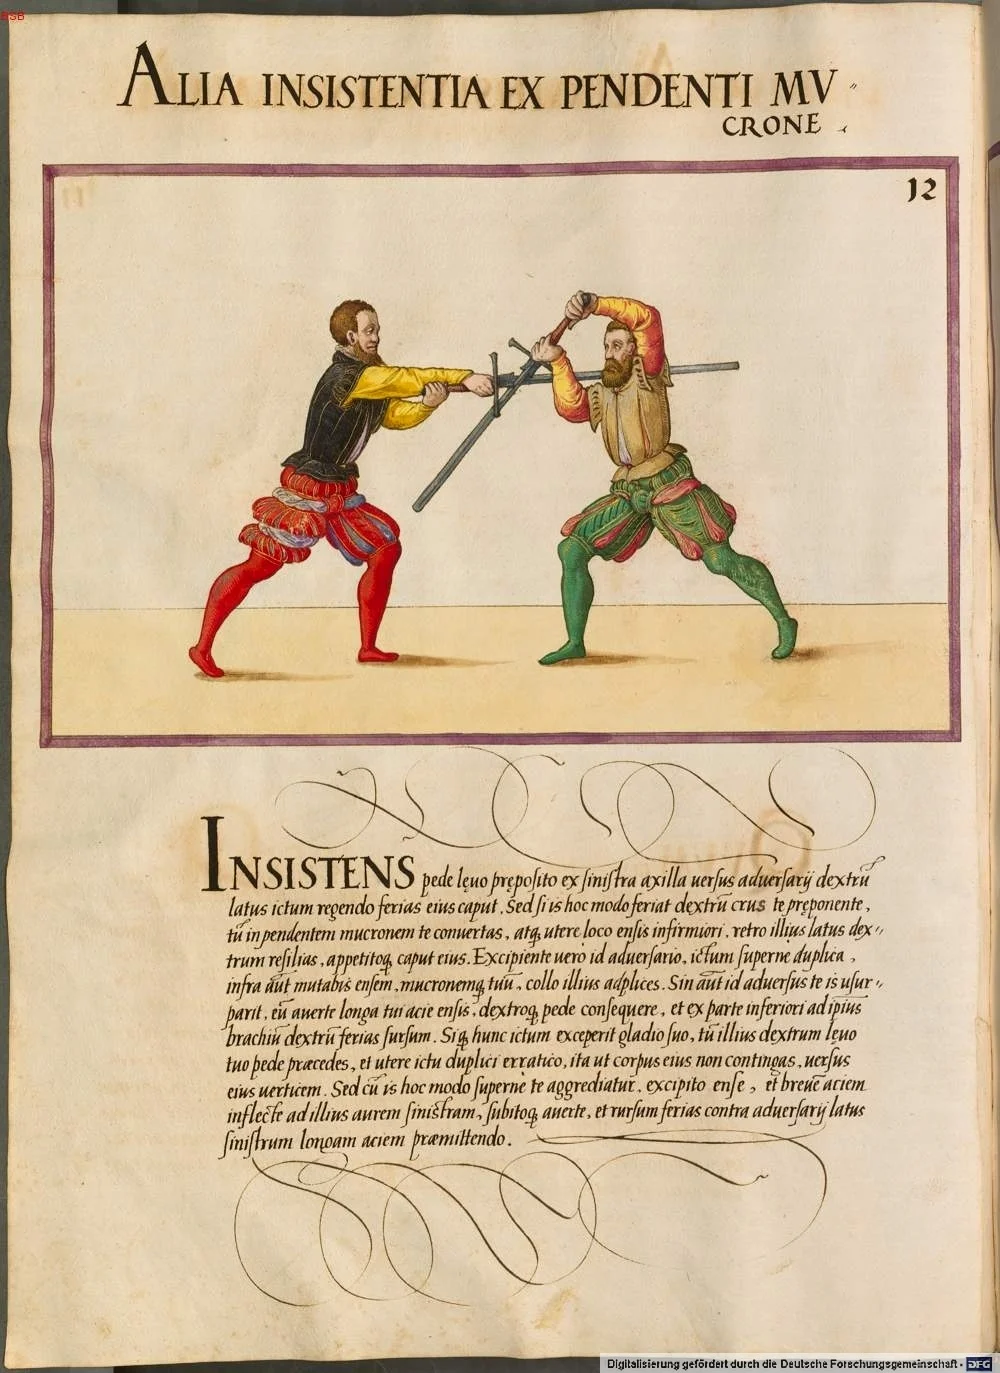 BSB
ALIA INSISTENTIA EX PENDENTI MV〃
CRONE
12
INSISTENS pede lęuo pręposito ex sinistra axilla uersus aduersarij dextrũ
latus ictum regendo ferias eius caput. Sed si is hoc modo feriat dextrũ crus te pręponente,
tũ in pendentem mucronem te conuertas, atq; utere loco ensis infirmiori, retro illius latus dex〃
trum resilias, appetitoq; caput eius. Excipiente uero id aduersario, ictum superne duplica,
infra aũt mutabis ensem, mucronemq; tuũ, collo illius adplices. Sin aũt id aduersus te is usur〃
parit, eũ auerte longa tui acie ensis, dextroq; pede consequere, et ex parte inferiori ad ipius
brachiũ dextrũ ferias sursum. Siq; hunc ictum exceperit gladio suo, tũ illius dextrum lęuo
tuo pede præcedes, et utere ictu duplici erratico, ita ut corpus eius non contingas, uersus
eius uerticem. Sed cũ is hoc modo supernè te aggrediatur, excipito ense, et breuẽ aciem
inflecte ad illius aurem sinistram, subitoq; auerte, et rursum ferias contra aduersarij latus
sinistrum longam aciem præmittendo.
Digitalisierung gefördert durch die Deutsche Forschungsgemeinschaft - DFG